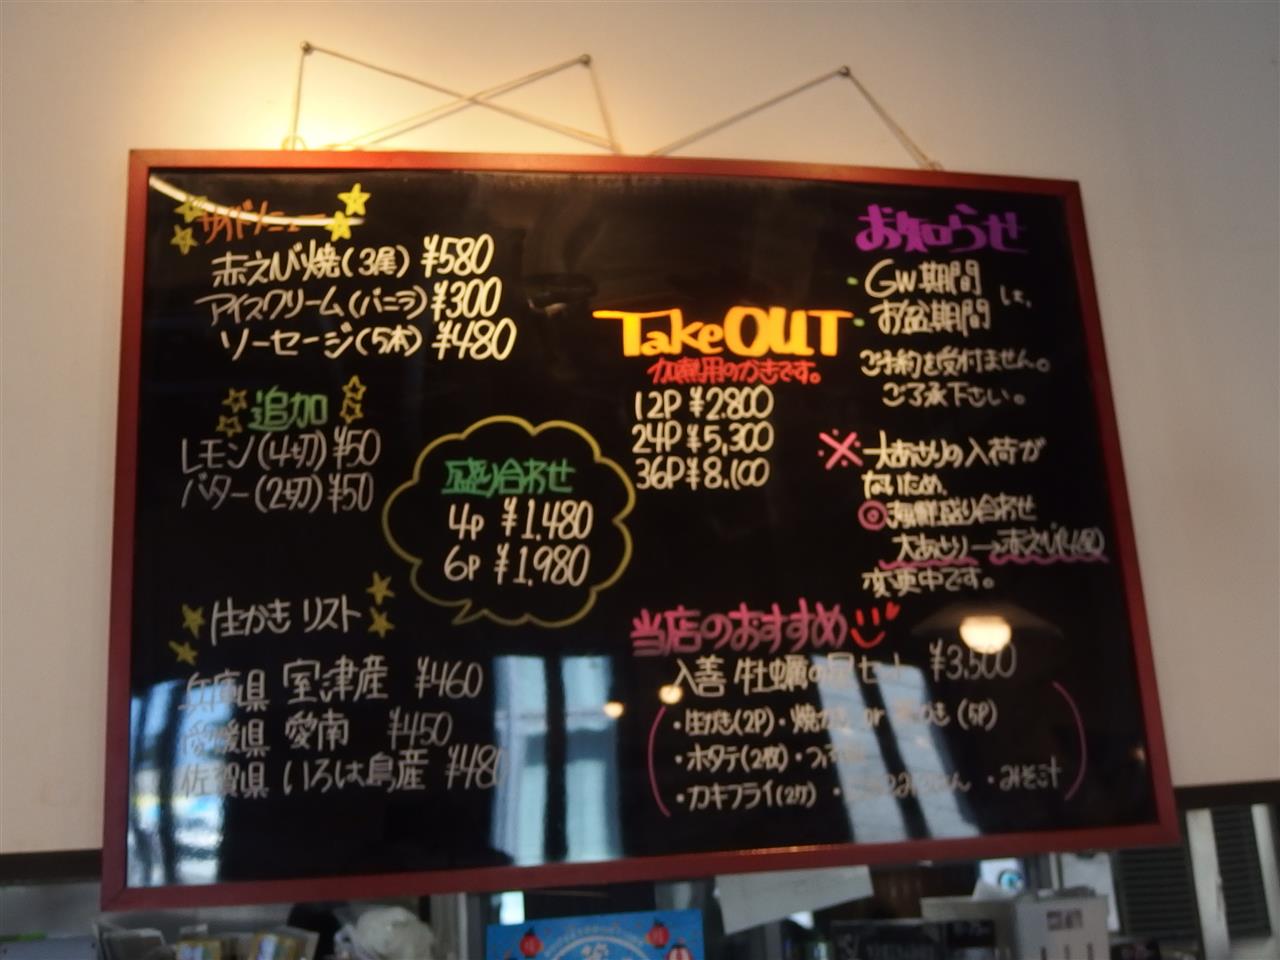 サイドメニュー
赤えび焼(3尾) ¥580
アイスクリーム(バニラ) ¥300
ソーセージ(5本) ¥480
追加
レモン(4切) ¥50
バター(2切) ¥50
盛り合わせ
4P ¥1,480
6P ¥1,980
生かきリスト
兵庫県 室津産 ¥460
愛媛県 愛南 ¥450
佐賀県 いろは島産 ¥480
Take OUT
加熱用のかきです。
12P ¥2,800
24P ¥5,300
36P ¥8,100
お知らせ
GW期間
お盆期間
ご予約を受付ません。
ご了承下さい。
※大あさりの入荷が
ないため、
◎海鮮盛り合わせ
大あさり→赤えび
変更中です。
当店のおすすめ
入善 牡蠣の セット ¥3,500
・生がき(2P)・焼がき or かき(5P)
・ホタテ(2枚)・つぶ
・カキフライ(2ケ)・ ・みそ汁